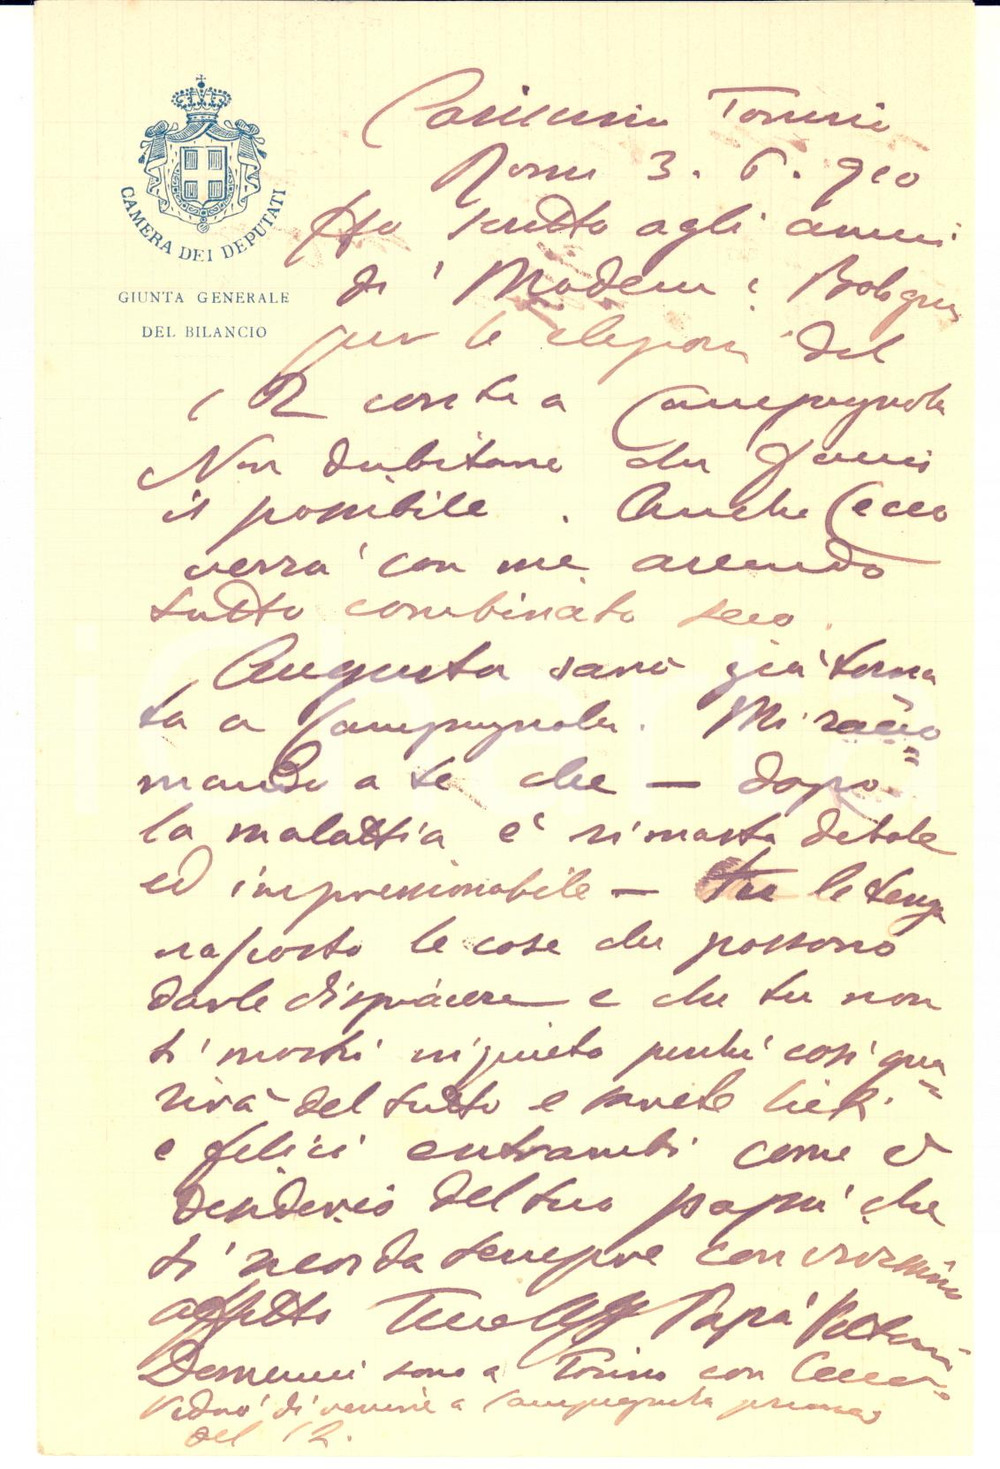 CAMERA DEI DEPUTATI
GIUNTA GENERALE
DEL BILANCIO
Carissimo
Roma 3. 6. 910
Ho scritto agli amici
di Modena e Bologna
per le elezioni del
12 contro a Campagnola
Non dubitare che
il possibile. Anche Cecco
verrà con me avendo
tutto combinato seco.
Augusta sarà già torna
ta a Campagnola. Mi racco=
mando a te che — dopo
la malattia è rimasta debole
ed impressionabile — tu le tenga
nascosto le cose che possono
darle dispiacere e che tu non
ti mostri inquieto perché così gua=
rirà del tutto e sarete lieti
e felici entrambi come è
desiderio del tuo papà che
ti ricorda sempre con vivissimo
affetto Tuo Papà
Domani sono a Torino con Cecco.
Vedrò di venire a Campagnola prima
del 12.